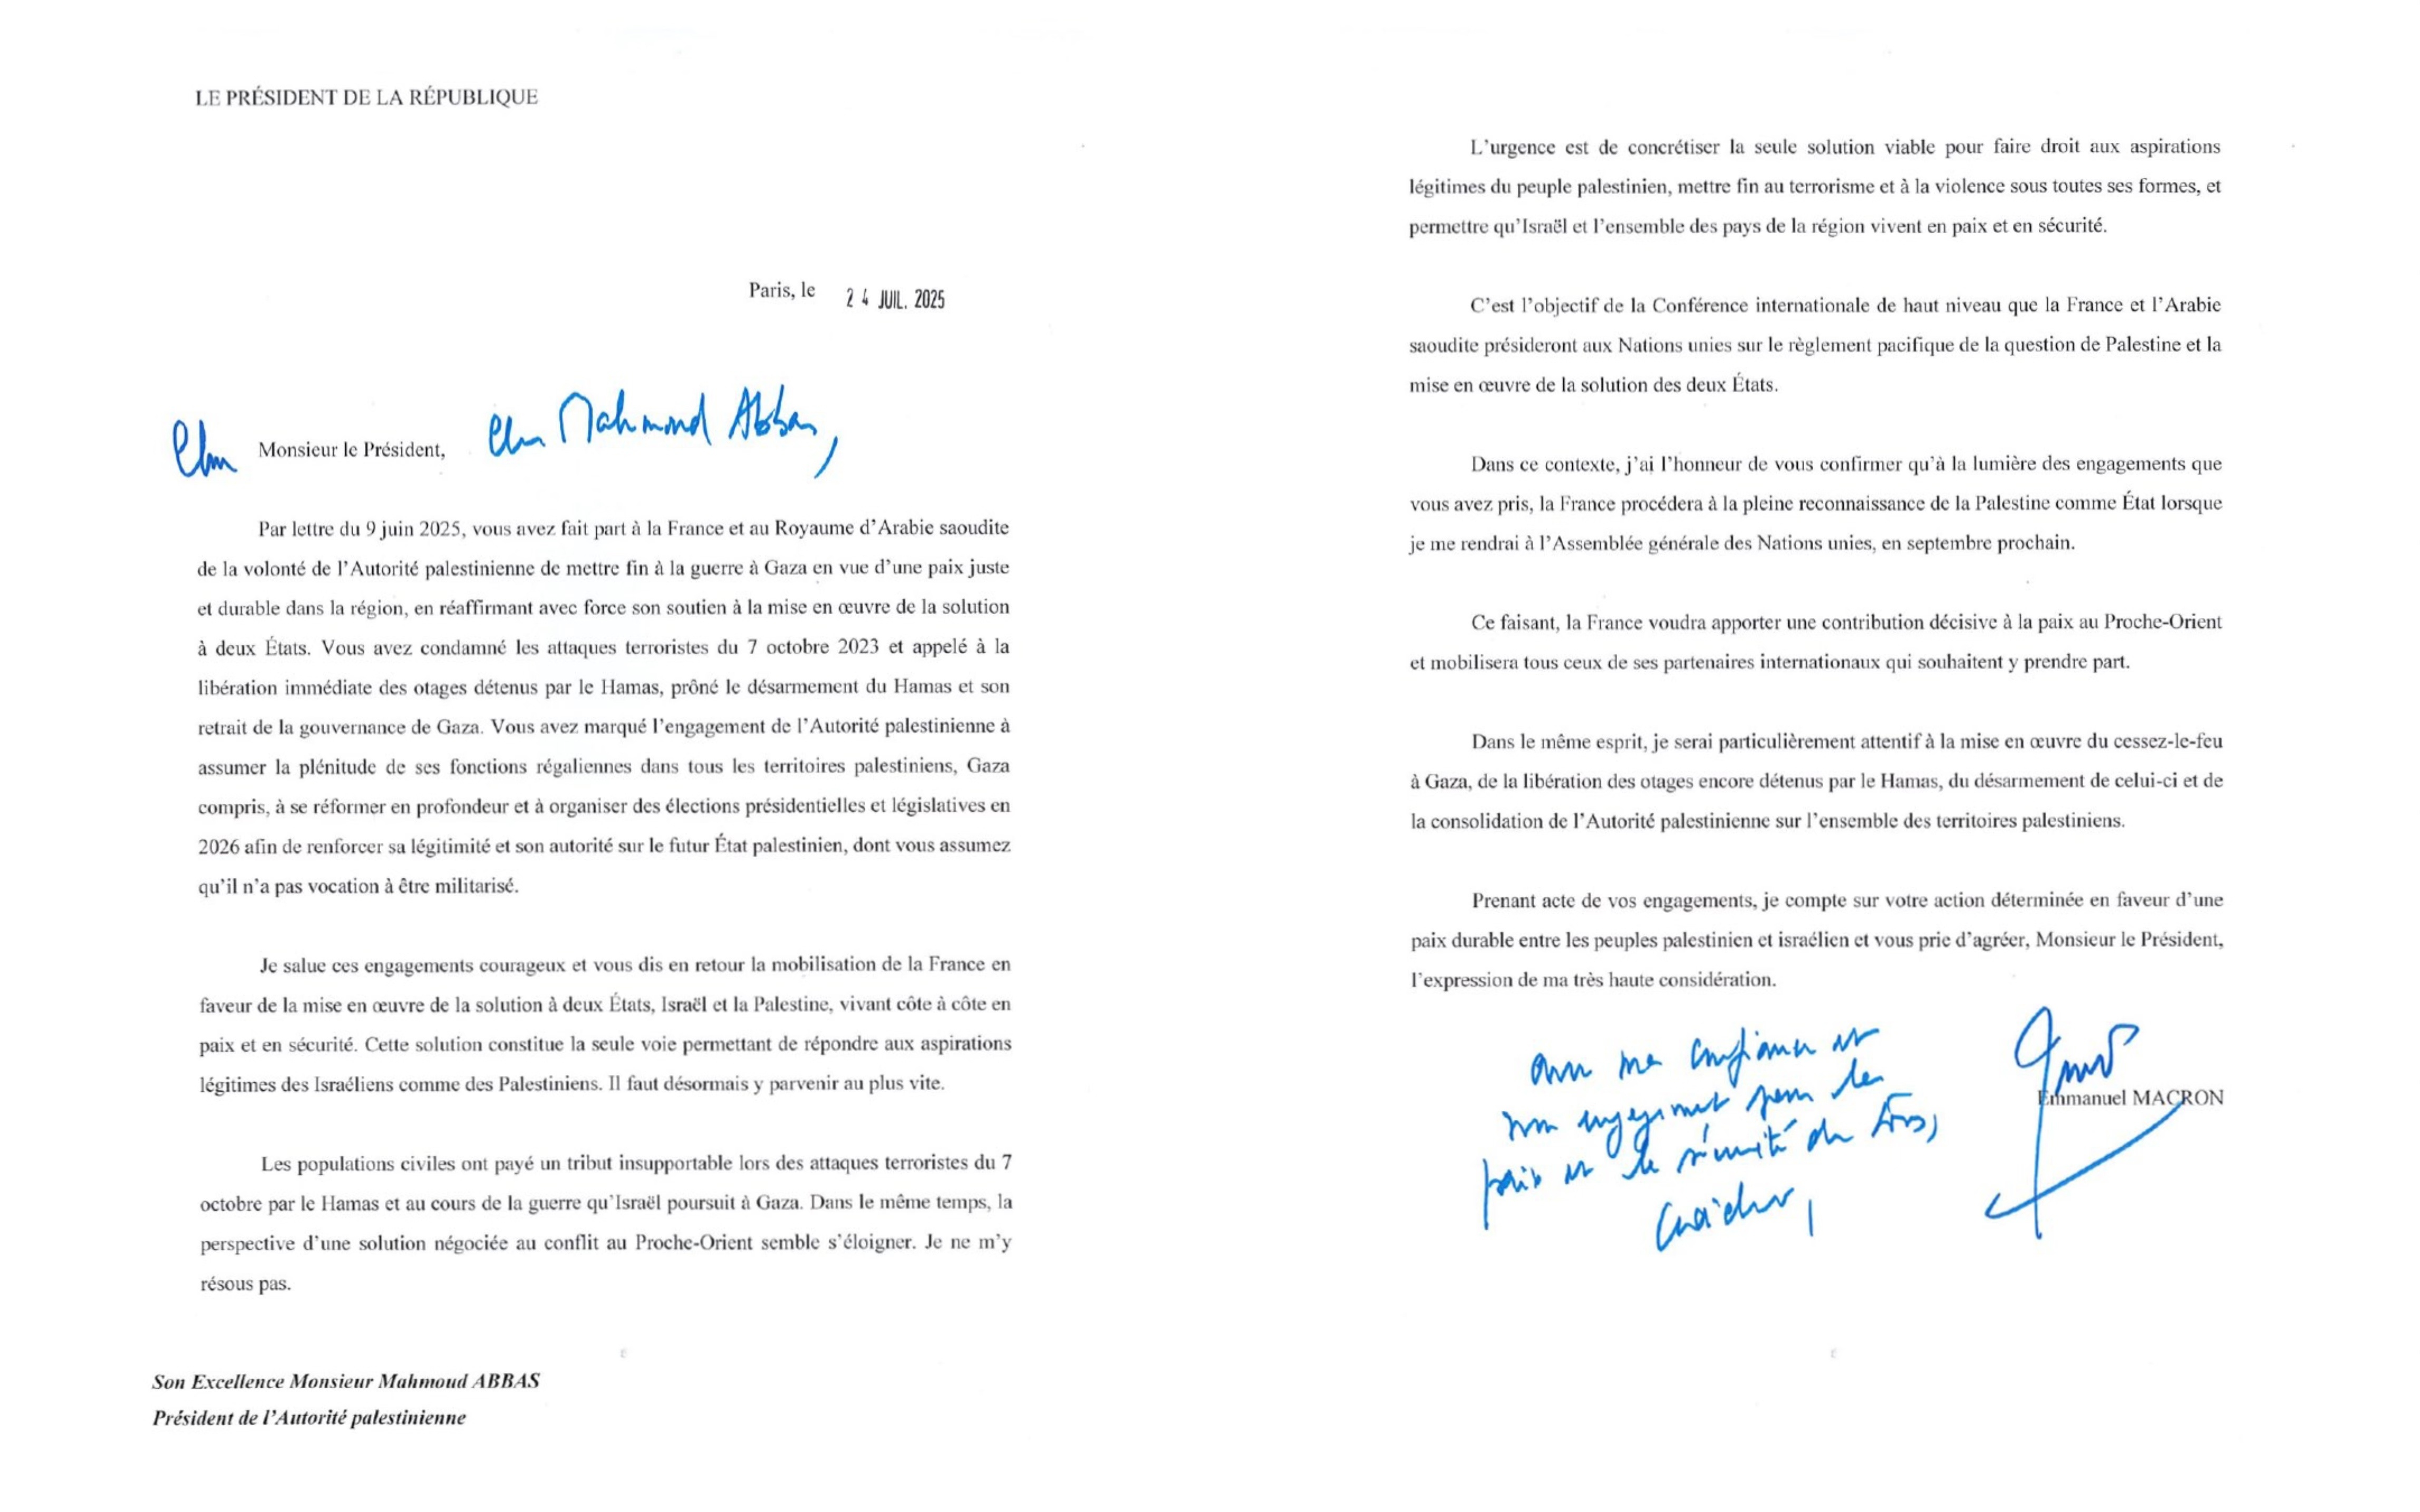 LE PRÉSIDENT DE LA RÉPUBLIQUE
Paris, le 24 JUIL. 2025
Cher Monsieur le Président, Cher Mahmoud Abbas,
Par lettre du 9 juin 2025, vous avez fait part à la France et au Royaume d'Arabie saoudite
de la volonté de l'Autorité palestinienne de mettre fin à la guerre à Gaza en vue d'une paix juste
et durable dans la région, en réaffirmant avec force son soutien à la mise en œuvre de la solution
à deux États. Vous avez condamné les attaques terroristes du 7 octobre 2023 et appelé à la
libération immédiate des otages détenus par le Hamas, prôné le désarmement du Hamas et son
retrait de la gouvernance de Gaza. Vous avez marqué l'engagement de l'Autorité palestinienne à
assumer la plénitude de ses fonctions régaliennes dans tous les territoires palestiniens, Gaza
compris, à se réformer en profondeur et à organiser des élections présidentielles et législatives en
2026 afin de renforcer sa légitimité et son autorité sur le futur État palestinien, dont vous assumez
qu'il n'a pas vocation à être militarisé.
Je salue ces engagements courageux et vous dis en retour la mobilisation de la France en
faveur de la mise en œuvre de la solution à deux États, Israël et la Palestine, vivant côte à côte en
paix et en sécurité. Cette solution constitue la seule voie permettant de répondre aux aspirations
légitimes des Israéliens comme des Palestiniens. Il faut désormais y parvenir au plus vite.
Les populations civiles ont payé un tribut insupportable lors des attaques terroristes du 7
octobre par le Hamas et au cours de la guerre qu'Israël poursuit à Gaza. Dans le même temps, la
perspective d'une solution négociée au conflit au Proche-Orient semble s'éloigner. Je ne m'y
résous pas.
Son Excellence Monsieur Mahmoud ABBAS
Président de l'Autorité palestinienne
L'urgence est de concrétiser la seule solution viable pour faire droit aux aspirations
légitimes du peuple palestinien, mettre fin au terrorisme et à la violence sous toutes ses formes, et
permettre qu'Israël et l'ensemble des pays de la région vivent en paix et en sécurité.
C'est l'objectif de la Conférence internationale de haut niveau que la France et l'Arabie
saoudite présideront aux Nations unies sur le règlement pacifique de la question de Palestine et la
mise en œuvre de la solution des deux États.
Dans ce contexte, j'ai l'honneur de vous confirmer qu'à la lumière des engagements que
vous avez pris, la France procédera à la pleine reconnaissance de la Palestine comme État lorsque
je me rendrai à l'Assemblée générale des Nations unies, en septembre prochain.
Ce faisant, la France voudra apporter une contribution décisive à la paix au Proche-Orient
et mobilisera tous ceux de ses partenaires internationaux qui souhaitent y prendre part.
Dans le même esprit, je serai particulièrement attentif à la mise en œuvre du cessez-le-feu
à Gaza, de la libération des otages encore détenus par le Hamas, du désarmement de celui-ci et de
la consolidation de l'Autorité palestinienne sur l'ensemble des territoires palestiniens.
Prenant acte de vos engagements, je compte sur votre action déterminée en faveur d'une
paix durable entre les peuples palestinien et israélien et vous prie d'agréer, Monsieur le Président,
l'expression de ma très haute considération.
Avec ma confiance et
mon engagement pour la
paix et la sécurité de tous,
Emmanuel MACRON